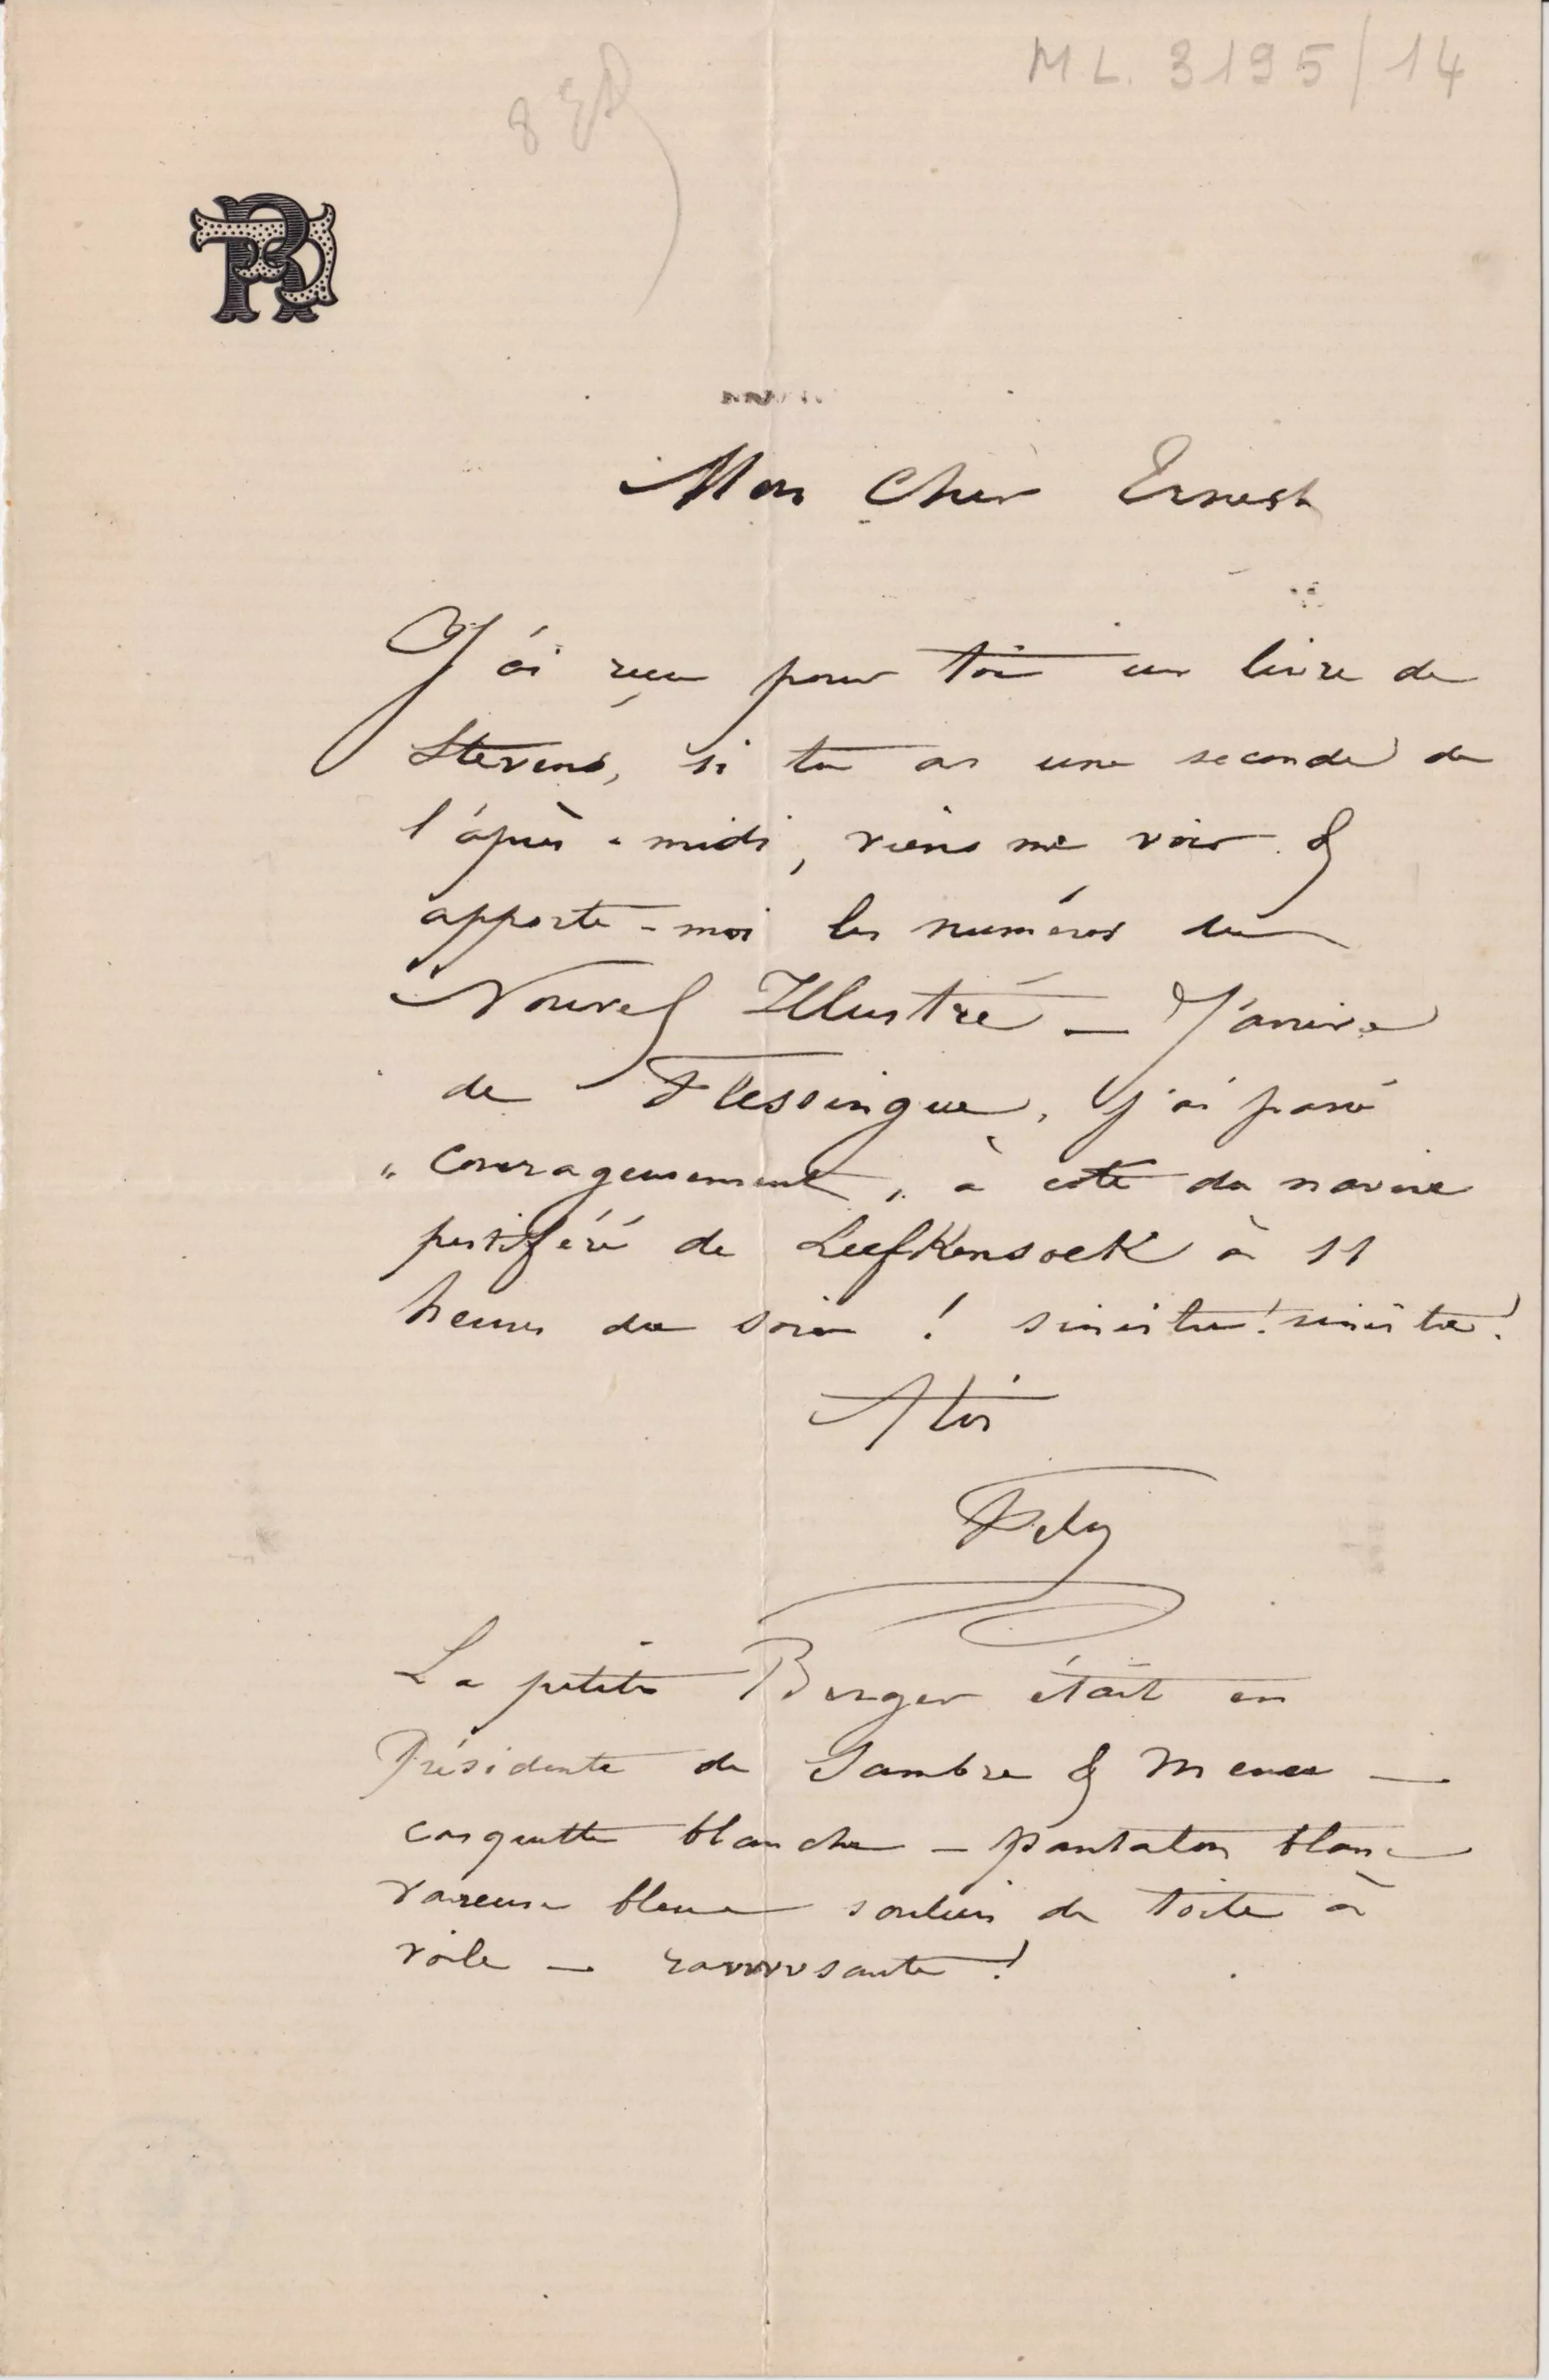 ML. 3195/14
Mon Cher Ernest
J'ai reçu pour toi un livre de
Stevens, si tu as une seconde de
l'après-midi, viens me voir &
apporte-moi les numéros du
Nouvel Illustré — J'arrive
de Flessingue, j'ai passé
"courageusement" à coté du navire
pestiféré de Leefkensoek à 11
heures du soir ! sinistre ! sinistre !
A toi
Fely
La petite Berger était en
Présidente de Sambre & Meuse —
casquette blanche — pantalon blanc
vareuse bleue souliers de toile à
voile — ravvvvsante !